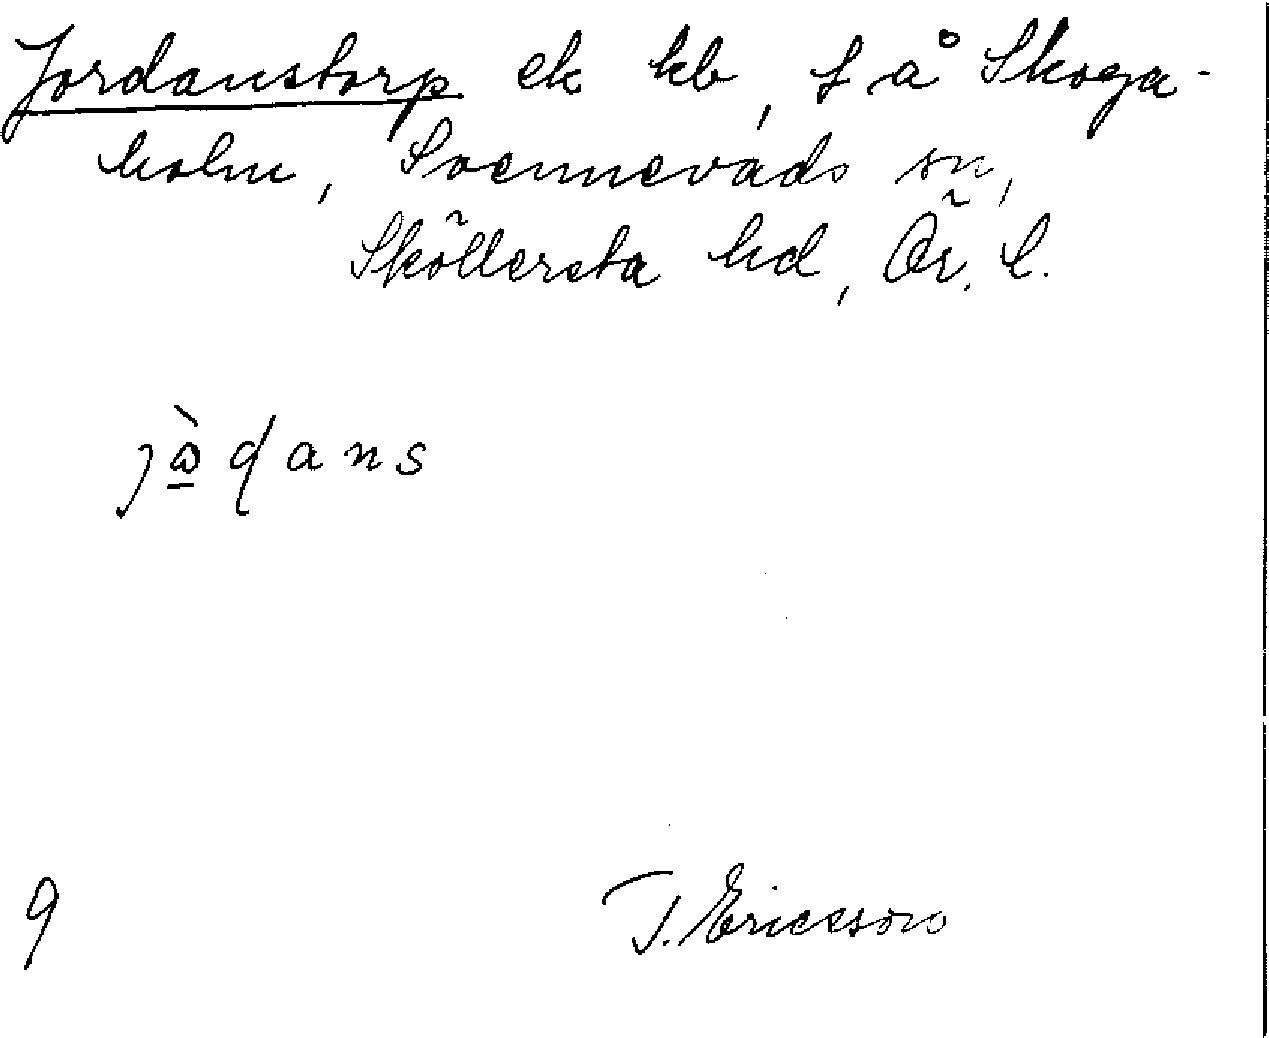 Jordanstorp ek kb, f å Skoga-
holm, Svennevads sn,
Sköllersta hd, Ör. l.
9
T. Ericsson